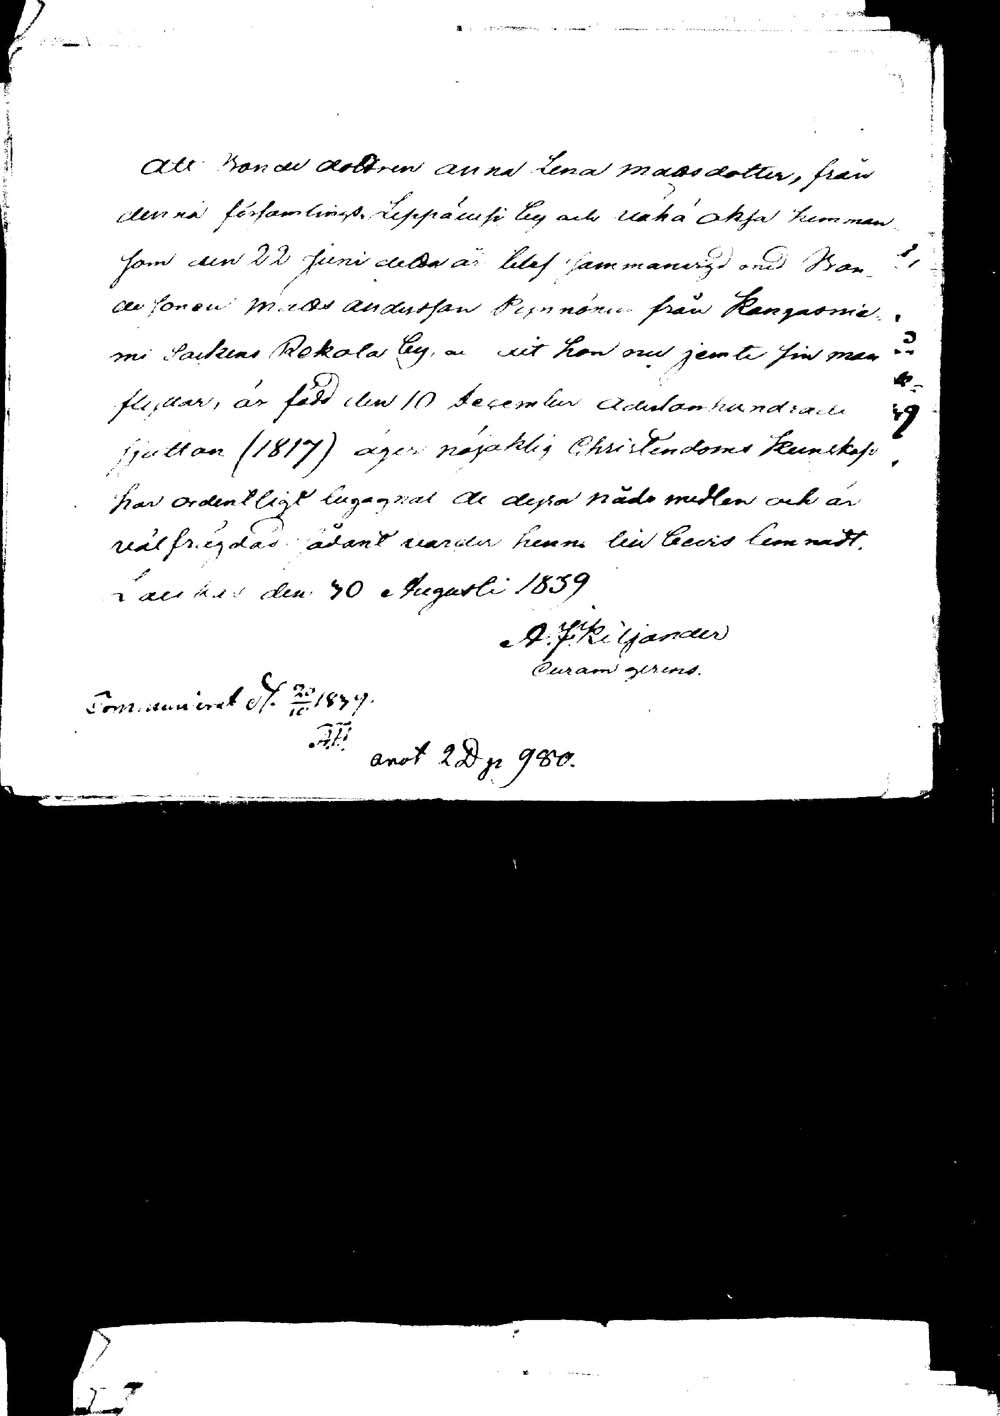 Att Bonde dottren Anna Lena Matsdotter, från
denna församlings Leppävesi by och Vähä Oksa hemman
som den 22 Juni detta år blef sammanvigd med Bon-
de sonen Mats Andersson Pynnönen från Kangasnie-
mi Sockens Rokola by, dit hon nu jemte sin man
flyttar, är född den 10 December Adertonhundrade
sjutton (1817) äger nöjaktig Christendoms kunskap
har ordentligt begagnat de dyra nåde medlen och är
välfrägdad sådant varder henne till bevis lemnadt.
Laukas den 30 Augusti 1839
A. F. Kiljander
Curam gerens.
Communicerat d. 20/10 1839.
anot 2 D p 980.